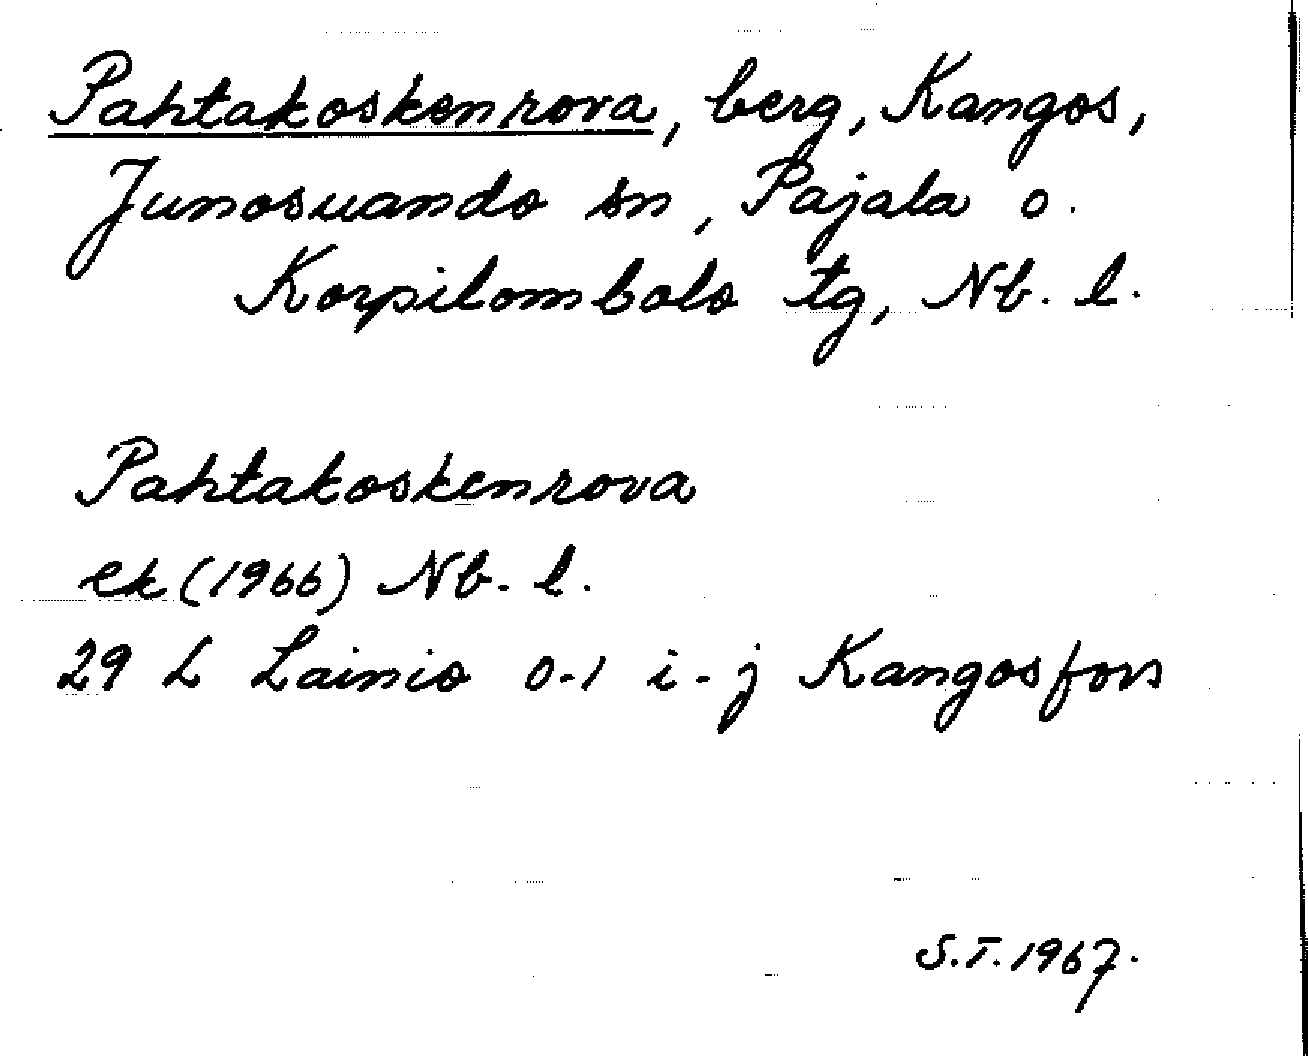 Pahtakoskenrova, berg, Kangos,
Junosuando sn, Pajala o.
Korpilombolo tg, Nb. l.
Pahtakoskenrova
ek (1966) Nb. l.
29 L Lainio 0-1 i-j Kangosfors
S.T. 1967.